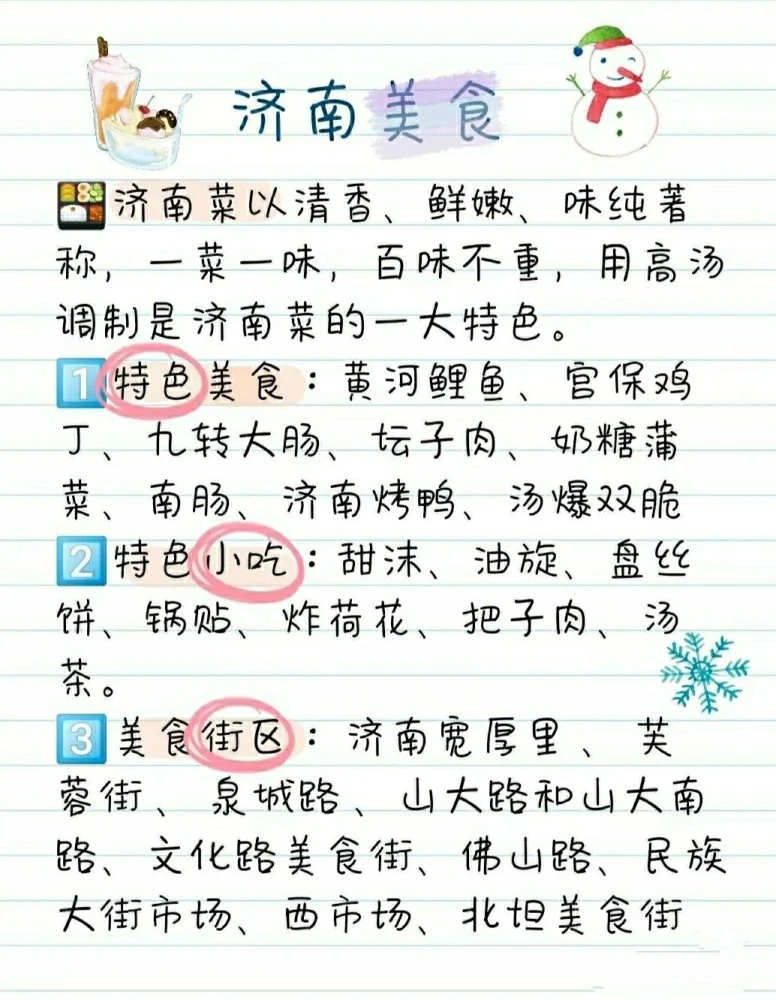 济南美食
济南菜以清香、鲜嫩、味纯著
称，一菜一味，百味不重，用高汤
调制是济南菜的一大特色。
1 特色美食：黄河鲤鱼、宫保鸡
丁、九转大肠、坛子肉、奶糖蒲
菜、南肠、济南烤鸭、汤爆双脆
2 特色小吃：甜沫、油旋、盘丝
饼、锅贴、炸荷花、把子肉、汤
茶。
3 美食街区：济南宽厚里、芙
蓉街、泉城路、山大路和山大南
路、文化路美食街、佛山路、民族
大街市场、西市场、北坦美食街